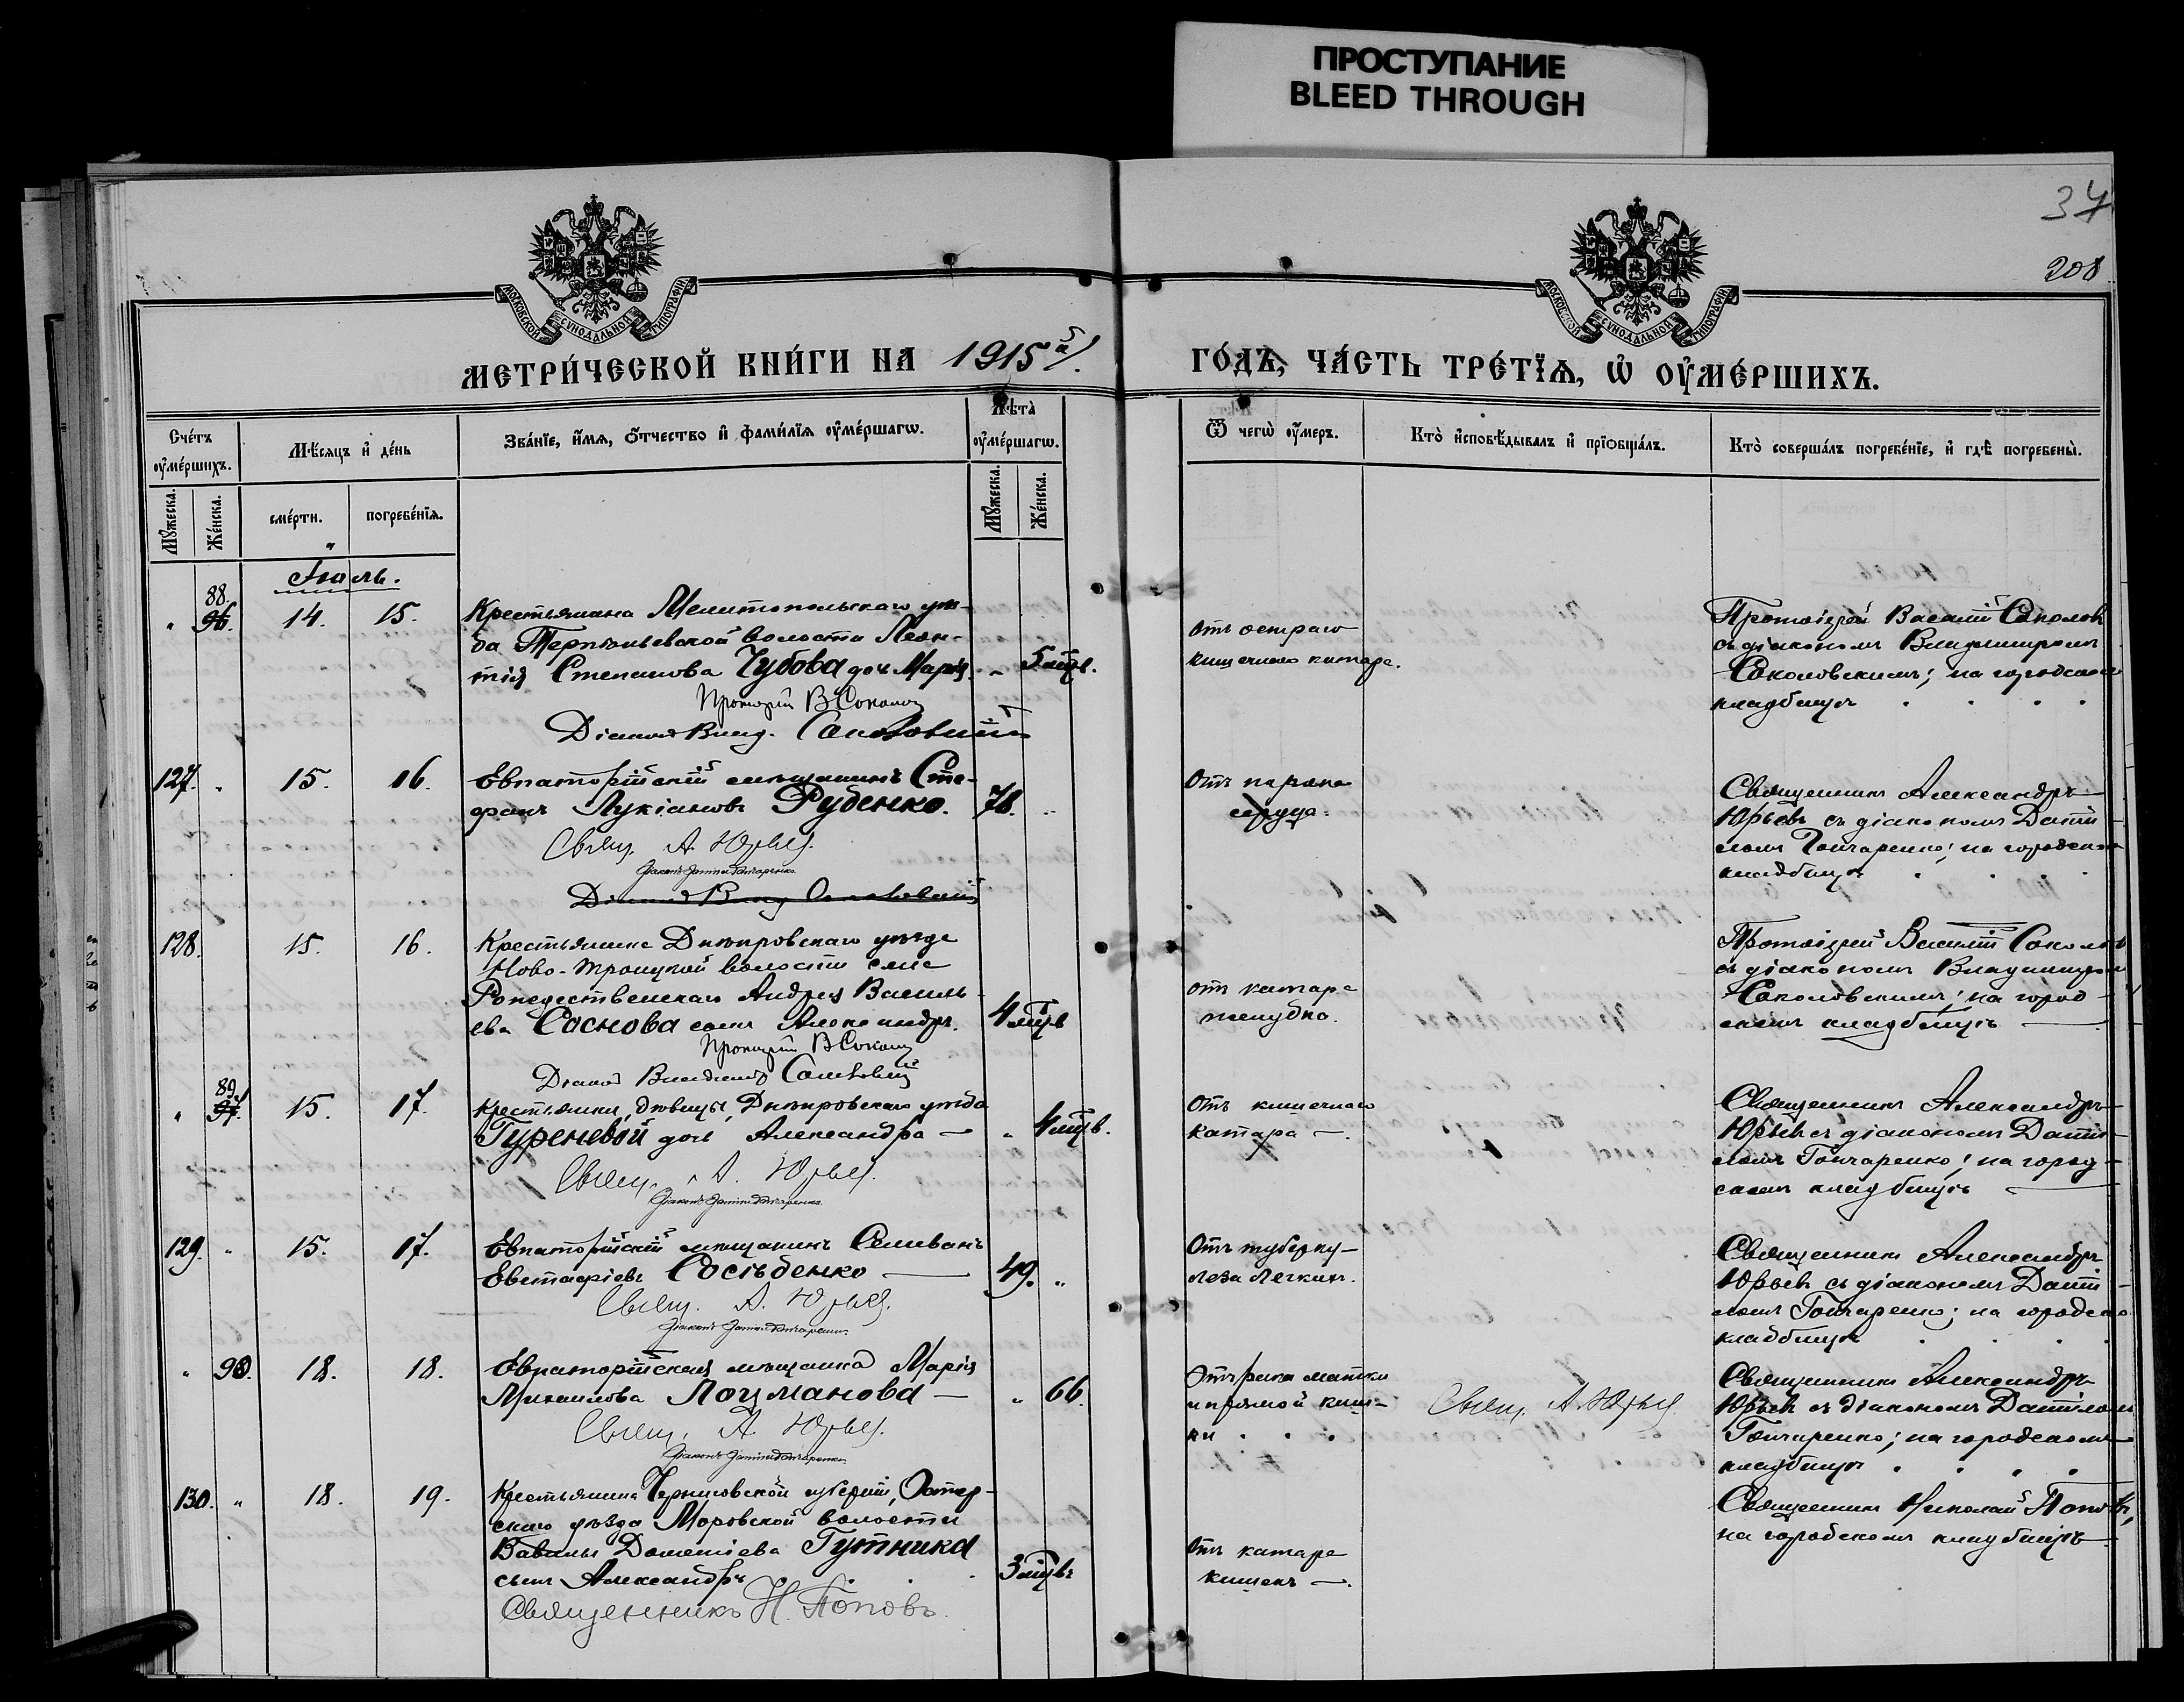 ПРОСТУПАНИЕ
BLEED THROUGH
34
208
МОСКОВСКОЙ СѴНОДАЛЬНОЙ ТИПОГРАФІИ
МОСКОВСКОЙ СѴНОДАЛЬНОЙ ТИПОГРАФІИ
МЕТРИ́ЧЕСКОЙ КНИ́ГИ НА 1915й г. ГО́ДЪ, ЧА́СТЬ ТРЕ́ТЇѦ, Ѡ ОУ҆МЕ́РШИХЪ.
Сче́тъ оу҆ме́ршихъ.
Мѣ́сяцъ и҆ де́нь
Зва́нїе, и҆́мѧ, ѻ҆́тчество и҆ фами́лїѧ оу҆ме́ршагѡ.
Лѣ́та оу҆ме́ршагѡ.
Ѿ чегѡ̀ оу҆́меръ.
Кто̀ и҆сповѣ́дывалъ и҆ прїѡбща́лъ.
Кто̀ соверша́лъ погребе́нїе, и҆ гдѣ̀ погребены̀.
Мꙋ́жеска.
Же́нска.
сме́рти.
погребе́нїѧ.
Мꙋ́жеска.
Же́нска.
Іюль.
88.
" 96. 14. 15.
Крестьянина Мелитопольскаго уѣз-
да Терпѣньевской волости Леон-
тія Степанова Чубова дочь Марія. " 5 мцв.
Протоіерей В Соколов
Діаконъ Влад. Соколовскій
Отъ остраго
кишечнаго катара.
Протоіерей Василій Соколовъ
съ діакономъ Владиміромъ
Соколовскимъ; на городскомъ
кладбищѣ
127. " 15. 16.
Евпаторійскій мѣщанинъ Сте-
фанъ Лукіановъ Руденко. 78. "
Свящ. А. Юрьев.
Діаконъ Даніил Гончаренко
Діаконъ Влад Соколовскій
Отъ порока
сердца.
Священникъ Александръ
Юрьевъ съ діакономъ Даніи-
ломъ Гончаренко; на городском
кладбищѣ
128. 15. 16.
Крестьянина Днѣпровскаго уѣзда
Ново-Троицкой волости села
Рождественскаго Андрея Василь-
ева Соснова сынъ Александръ. 4 мцв
Протоіерей В Соколов
Діаконъ Владимір Соколовскій
отъ катара
желудка.
Протоіерей Василій Соколовъ
съ діакономъ Владиміромъ
Соколовскимъ; на город-
скомъ кладбищѣ
89.
" 97. 15. 17.
Крестьянки, дѣвицы, Днѣпровскаго уѣзда
Гуреневой дочь Александра — " 4 мцв.
Свящ. А. Юрьев.
Діаконъ Даніил Гончаренко
Отъ кишечнаго
катара —.
Священникъ Александръ
Юрьевъ съ діакономъ Даніи-
ломъ Гончаренко; на город-
скомъ кладбищѣ
129. " 15. 17.
Евпаторійскій мѣщанинъ Селиванъ
Евстафіевъ Сосѣденко — 49. "
Свящ. А. Юрьев.
Діаконъ Даніил Гончаренко
Отъ туберку-
леза легкихъ.
Священникъ Александръ
Юрьевъ съ діакономъ Даніи-
ломъ Гончаренко; на городском
кладбищѣ
" 90. 18. 18.
Евпаторійская мѣщанка Марія
Михаилова Лоцманова — " 66.
Свящ. А. Юрьев.
Діаконъ Даніил Гончаренко
Отъ рака матки
и прямой киш-
ки
Свящ. А. Юрьев
Священникъ Александръ
Юрьевъ съ діакономъ Даніиломъ
Гончаренко; на городскомъ
кладбищѣ
130. " 18. 19.
Крестьянина Черниговской губерніи, Остер-
скаго уѣзда Моровской волости
Вавилы Дометіева Гутника
сынъ Александръ 3 мцвъ
Священникъ Н. Поповъ.
Отъ катара
кишекъ —.
Священникъ Николай Поповъ,
на городскомъ кладбищѣ